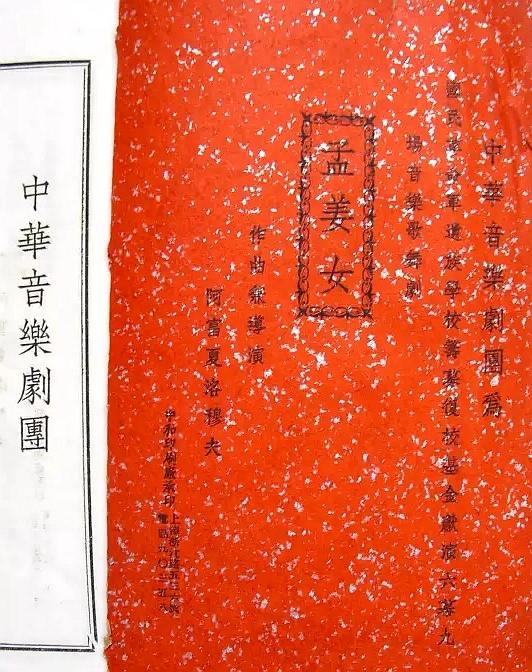 中華音樂劇團爲
國民革命軍遺族學校籌募復校基金獻演六幕九
場音樂歌舞劇
孟姜女
作曲兼導演
阿富夏洛穆夫
華和印刷廠承印
中華音樂劇團